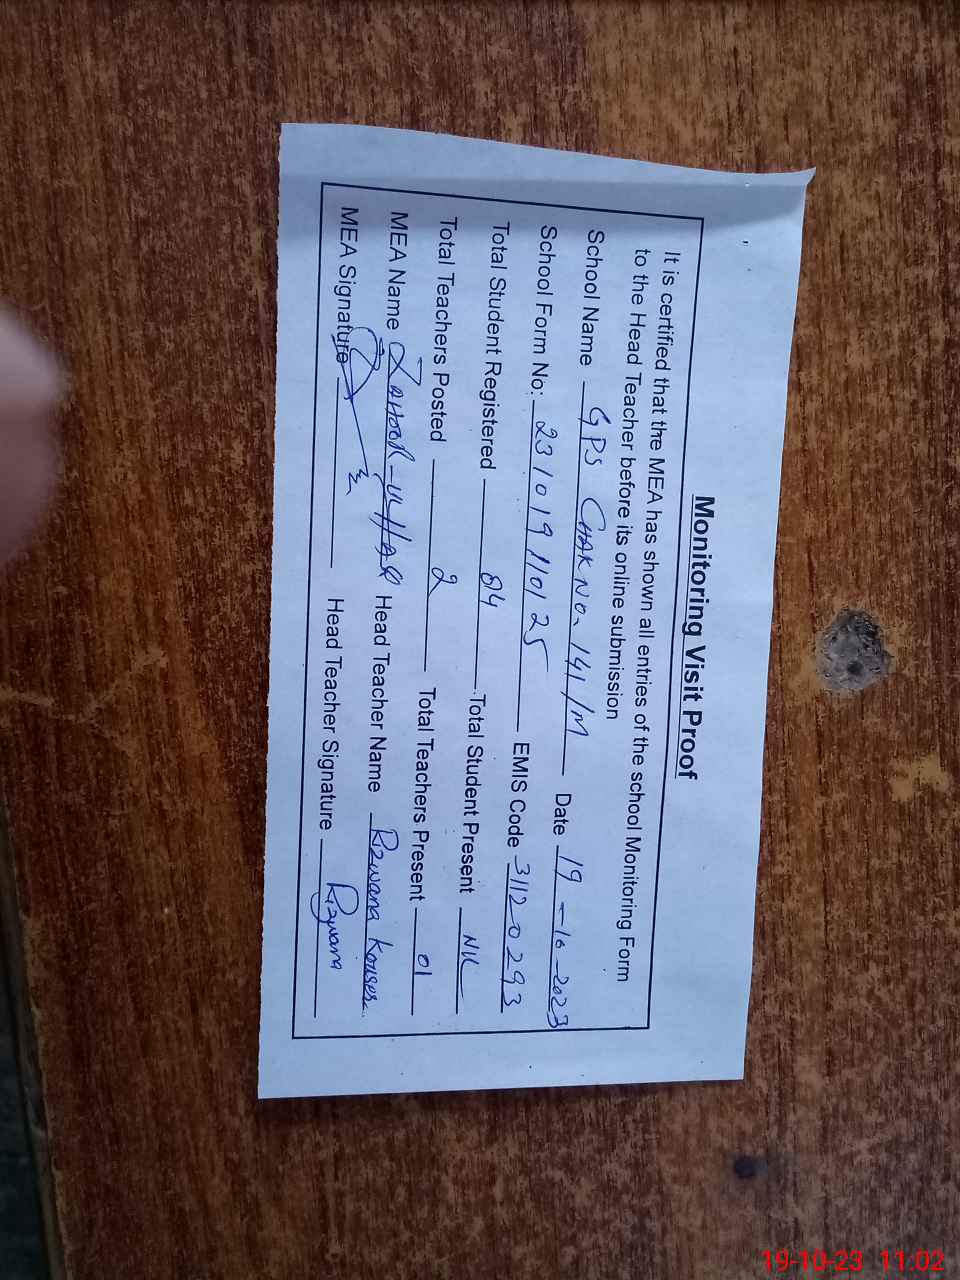 Monitoring Visit Proof
It is certified that the MEA has shown all entries of the school Monitoring Form
to the Head Teacher before its online submission
School Name GPS CHAK No. 141/M Date 19-10-2023
School Form No: 231019110125 EMIS Code 31120293
Total Student Registered 84 Total Student Present Nil
Total Teachers Posted 2 Total Teachers Present 01
MEA Name ZAHOOR-UL-HAQ Head Teacher Name Rizwana Kouser
MEA Signature Head Teacher Signature Rizwana
19-10-23 11:02